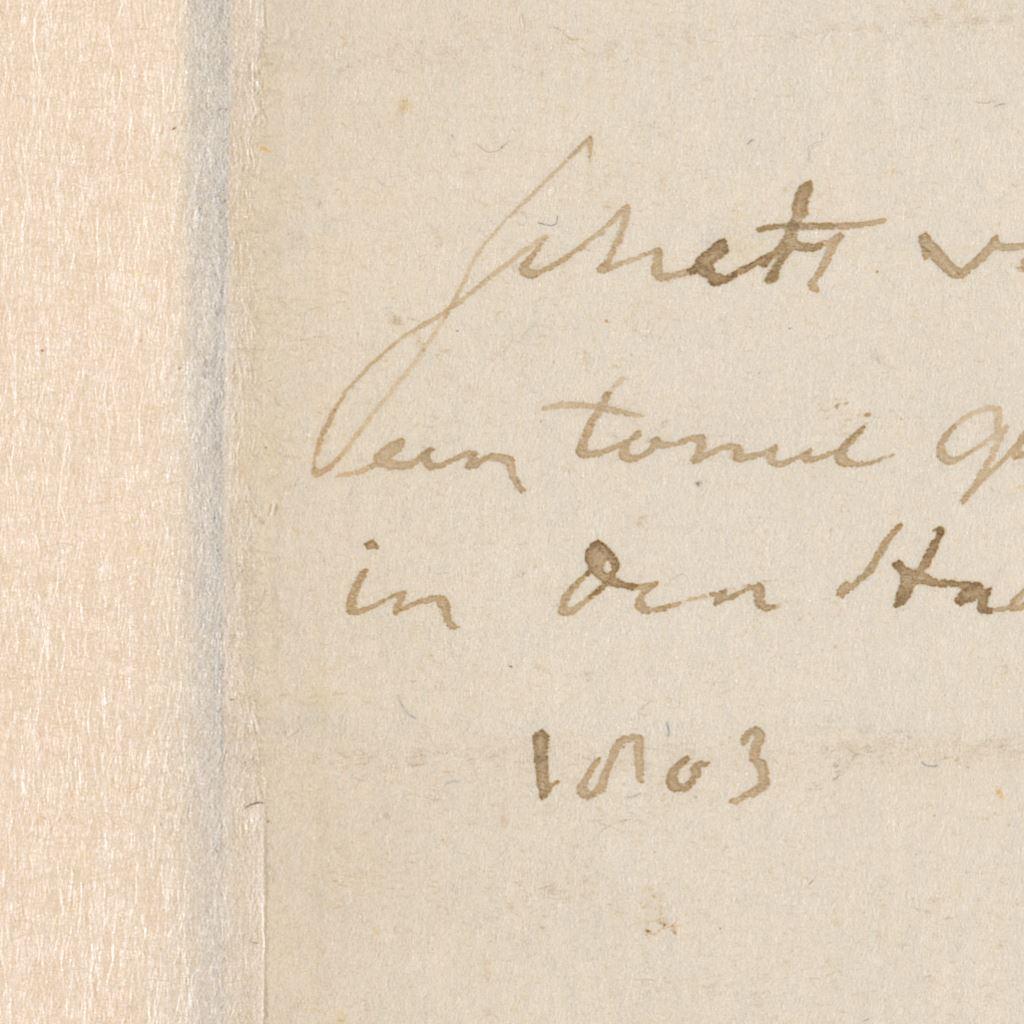 schets v
een toneel ge
in den Haa
1803